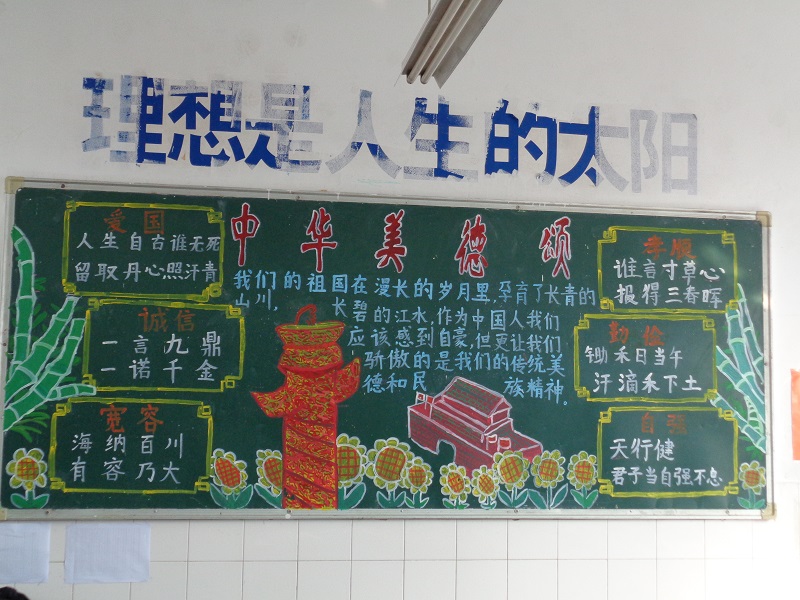 理想是人生的太阳
中华美德颂
爱国
人生自古谁无死
留取丹心照汗青
诚信
一言九鼎
一诺千金
宽容
海纳百川
有容乃大
我们的祖国在漫长的岁月里,孕育了长青的
山川, 长碧的江水,作为中国人我们
应该感到自豪,但更让我们
骄傲的是我们的传统美
德和民 族精神。
孝顺
谁言寸草心
报得三春晖
勤俭
锄禾日当午
汗滴禾下土
自强
天行健
君子当自强不息